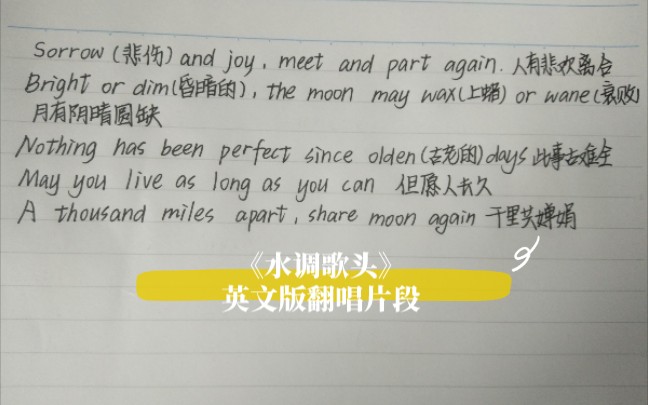 Sorrow (悲伤) and joy, meet and part again. 人有悲欢离合
Bright or dim(昏暗的), the moon may wax(上蜡) or wane(衰败)
月有阴晴圆缺
Nothing has been perfect since olden(古老的)days 此事古难全
May you live as long as you can 但愿人长久
A thousand miles apart, share moon again 千里共婵娟
《水调歌头》
英文版翻唱片段